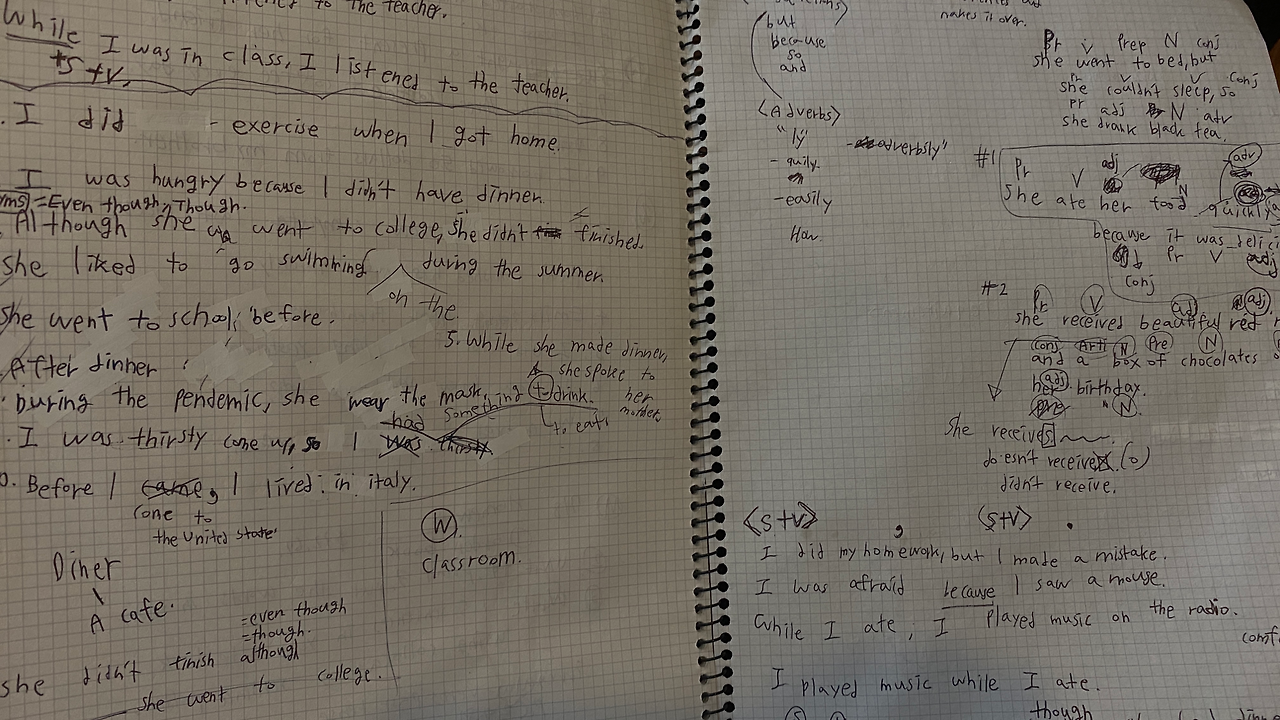 to the teacher.
While I was in class, I listened to the teacher.
+S +V,
. I did - exercise when I got home.
I was hungry because I didn't have dinner.
=Even though, Though.
Although she went to college, she didn't finished.
she liked to go swimming during the summer.
on the
She went to school before.
After dinner
During the pendemic, she wear the mask.
. I was thirsty come up, so I was thirsty
had something to drink.
to eat
5. While she made dinner,
she spoke to
her mother.
0. Before I came, I lived in italy.
come to
the United State
Diner
A cafe.
=even though
=though.
although
she didn't finish
she went to college.
W.
classroom.
but
because
so
and
<Adverbs>
"ly"
- quily.
-easily
How
- adverbsly"
makes it over.
Pr V Prep N conj
she went to bed, but
Pr V V Conj
she couldn't sleep, so
Pr adj N adv
she drank black tea.
#1
Pr V adj N adv
She ate her food quickly
because it was
Pr V adj
conj
#2
Pr V adj adj
she received beautiful red
Conj Arti N Pre N
and a box of chocolates
adj
her birthday.
pre "N"
She receives
doesn't receive (o)
didn't receive.
<S+V> , <S+V> .
I did my homework, but I made a mistake.
I was afraid because I saw a mouse.
While I ate, I played music on the radio.
I played music while I ate.
though